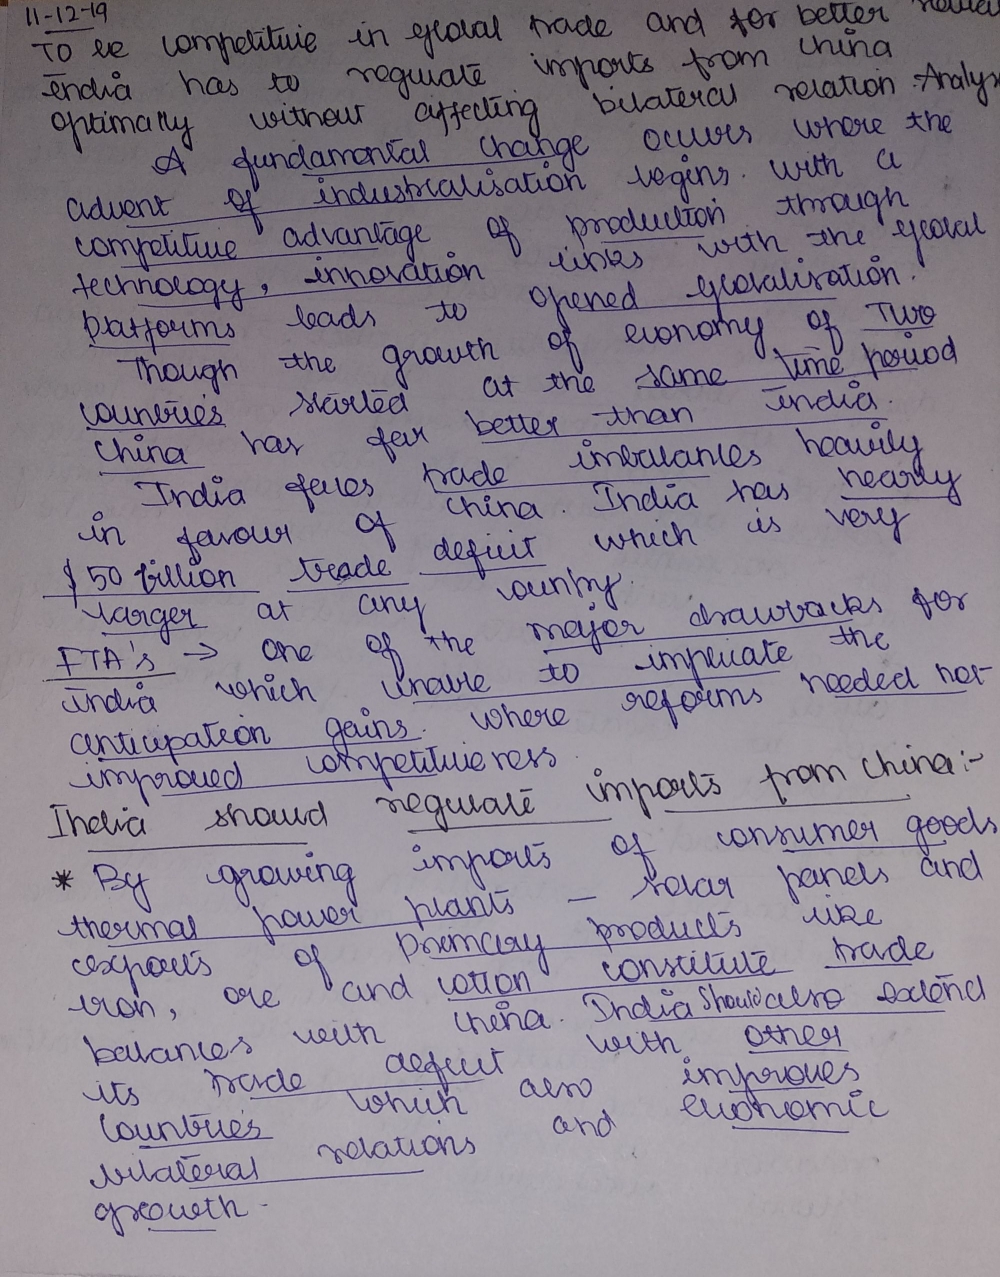 11-12-19
To be competitive in global trade and for better
India has to regulate imports from China
optimally without affecting bilateral relation. Analys
A fundamental change occurs where the
advent of industrialisation begins. With a
competitive advantage of production through
technology, innovation links with the global
platforms leads to opened globalisation.
Though the growth of economy of Two
countries started at the same time period
China has far better than India.
India faces trade imbalances heavily
in favour of China India has nearly
$50 billion trade deficit which is very
larger at any country.
FTA's → One of the major drawbacks for
India which unable to implicate the
anticipation gains. where reforms needed not
improved competitiveness.
India should regulate imports from China:-
* By growing imports of consumer goods
thermal power plants – solar panels and
exports of primary products like
iron, ore and cotton constitute trade
balances with China. India should also extend
its trade deficit with other
countries which also improves
bilateral relations and economic
growth.